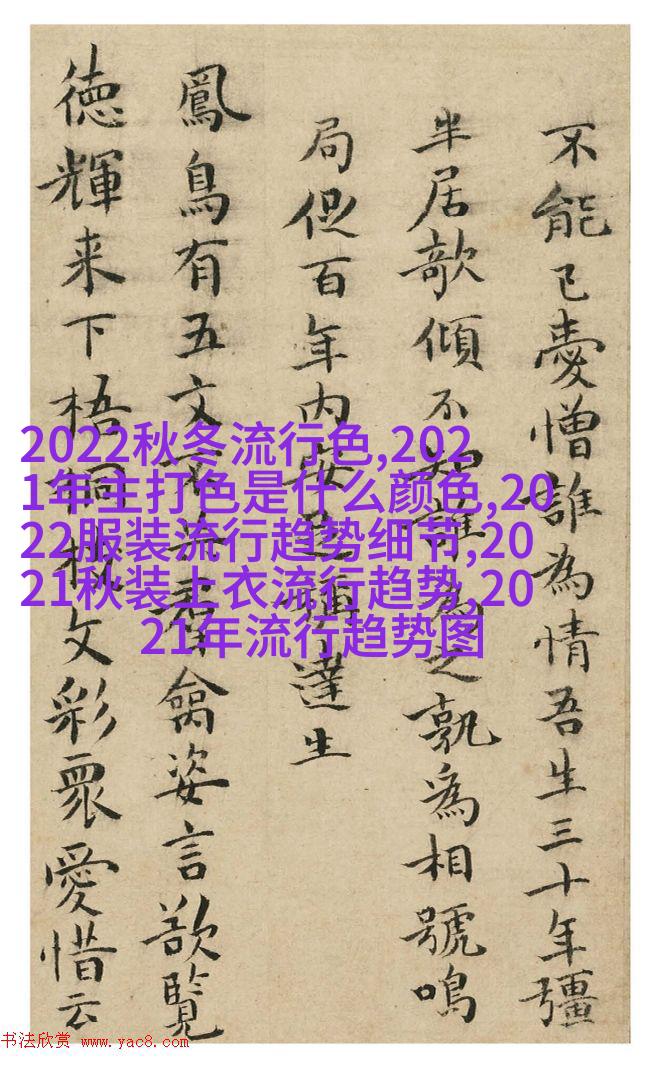 不能已憎誰為情吾生三十年彊
半居欹傾不知誰為之孰為相號鳴
局促百年內達生
鳳鳥有五文禽姿言欲覽
徳輝来下梧桐文彩眾愛惜云
2022秋冬流行色,202
1年主打色是什么颜色,20
22服装流行趋势细节,20
21秋装上衣流行趋势,20
21年流行趋势图
书法欣赏 www.yac8.com